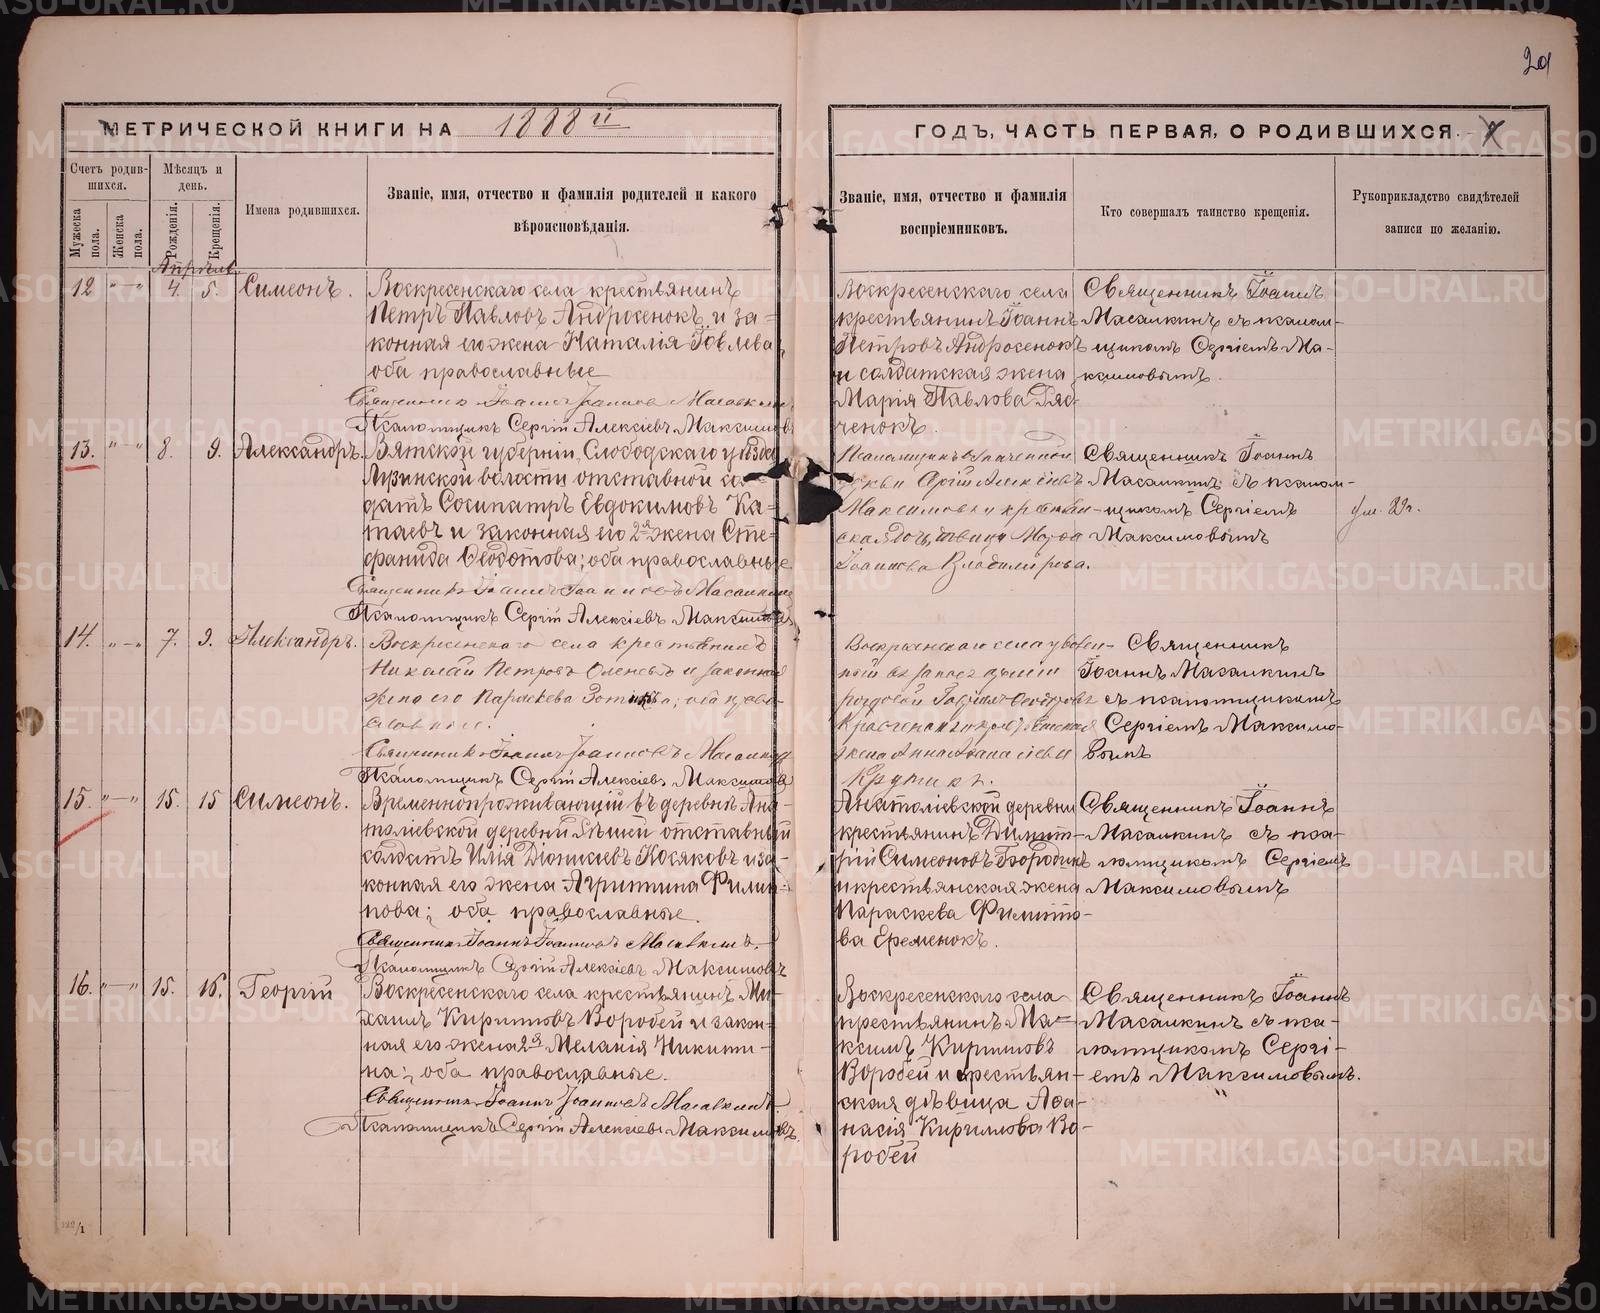 МЕТРИЧЕСКОЙ КНИГИ НА 1888й
ГОДЪ, ЧАСТЬ ПЕРВАЯ, О РОДИВШИХСЯ.
Счетъ родив-
шихся.
Мужеска пола.
Женска пола.
Мѣсяцъ и
день.
Рожденія.
Крещенія.
Имена родившихся.
Званіе, имя, отчество и фамилія родителей и какого
вѣроисповѣданія.
Званіе, имя, отчество и фамилія
воспріемниковъ.
Кто совершалъ таинство крещенія.
Рукоприкладство свидѣтелей
записи по желанію.
Апрѣль
12 "—" 4. 5. Симеонъ.
Воскресенскаго села крестьянинъ
Петръ Павловъ Андросенокъ и за-
конная его жена Наталія
оба православные
Священникъ Іоаннъ Іоанновъ Масалкинъ
Псаломщикъ Сергій Алексіевъ Максимовъ
Воскресенскаго села
крестьянинъ Іоаннъ
Петровъ Андросенокъ
и солдатская жена
Марія Павлова
ченокъ.
Священникъ Іоаннъ
Масалкинъ съ псалом-
щикомъ Сергіемъ Ма-
ксимовымъ.
13. "—" 8. 9. Александръ.
Вятской губерніи, Слободскаго уѣзда
волости отставной сол-
датъ Сосипатръ Евдокимовъ Ка-
таевъ и законная его 2я жена Сте-
фанида Ѳеодотова; оба православные
Священникъ Іоаннъ Іоанновъ Масалкинъ
Псаломщикъ Сергій Алексіевъ Максимовъ
Псаломщикъ
Сергій Алексіевъ
Максимовъ и крестьян-
ская дѣвица
Іоаннова Владимірова.
Священникъ Іоаннъ
Масалкинъ съ псалом-
щикомъ Сергіемъ
Максимовымъ
ум. 89г.
14. "—" 7. 9. Александръ.
Воскресенскаго села крестьянинъ
Николай Петровъ и законная
жена его Параскева; оба право-
славные.
Священникъ Іоаннъ Іоанновъ Масалкинъ
Псаломщикъ Сергій Алексіевъ Максимовъ
Воскресенскаго села уволен-
ный въ запасъ арміи
рядовой
жена Анна
Священникъ
Іоаннъ Масалкинъ
съ псаломщикомъ
Сергіемъ Максимо-
вымъ
15. "—" 15. 15 Симеонъ.
Временнопроживающій въ деревнѣ Ана-
толіевской отставный
солдатъ Илія Діонисіевъ Косяковъ и за-
конная его жена Агриппина Филип-
пова; оба православные.
Священникъ Іоаннъ Іоанновъ Масалкинъ.
Псаломщикъ Сергій Алексіевъ Максимовъ
Анатоліевской деревни
крестьянинъ Димит-
рій Симеоновъ
и крестьянская жена
Параскева Филиппо-
ва Еременокъ.
Священникъ Іоаннъ
Масалкинъ съ пса-
ломщикомъ Сергіемъ
Максимовымъ
16. "—" 15. 16. Георгій
Воскресенскаго села крестьянинъ Ми-
хаилъ Кирилловъ Воробей и закон-
ная его жена 2я Меланія Никити-
на; оба православные.
Священникъ Іоаннъ Іоанновъ Масалкинъ.
Псаломщикъ Сергій Алексіевъ Максимовъ.
Воскресенскаго села
крестьянинъ Ма-
ксимъ Кирилловъ
Воробей и крестьян-
ская дѣвица Аѳа-
насія Кириллова Во-
робей
Священникъ Іоаннъ
Масалкинъ съ пса-
ломщикомъ Сергі-
емъ Максимовымъ.
METRIKI.GASO-URAL.RU